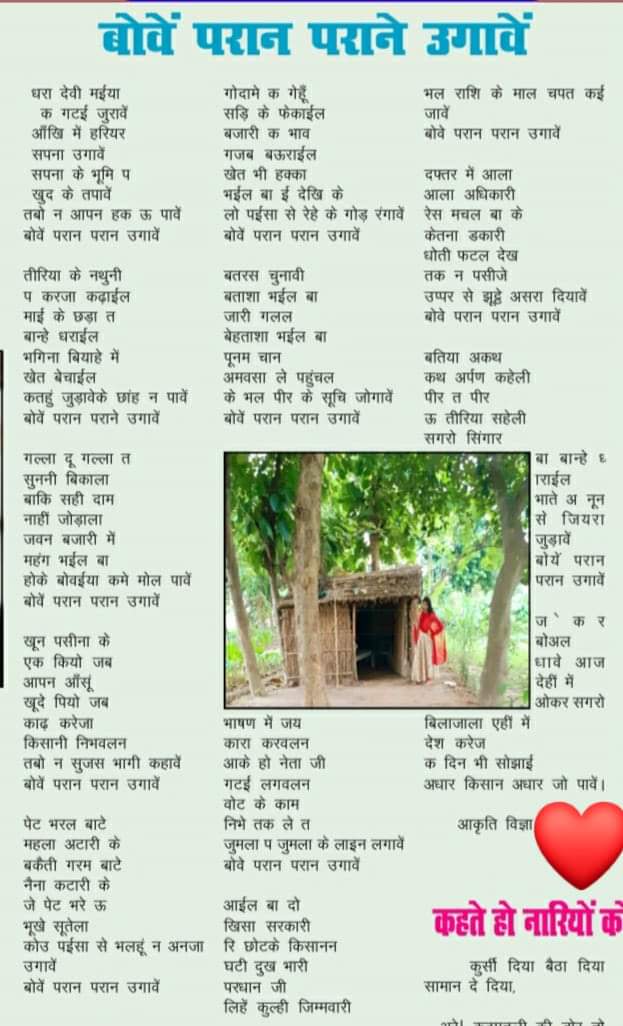 बोवें परान पराने उगावें
धरा देवी मईया
क गटई जुरावें
आँखि में हरियर
सपना उगावें
सपना के भूमि प
खुद के तपावें
तबो न आपन हक ऊ पावें
बोवें परान परान उगावें
तीरिया के नथुनी
प करजा कढ़ाईल
माई के छड़ा त
बान्हे धराईल
भगिना बियाहे में
खेत बेचाईल
कतहुं जुड़ावेके छांह न पावें
बोवें परान पराने उगावें
गल्ला दू गल्ला त
सुननी बिकाला
बाकि सही दाम
नाहीं जोड़ाला
जवन बजारी में
महंग भईल बा
होके बोवईया कमे मोल पावें
बोवें परान परान उगावें
खून पसीना के
एक कियो जब
आपन आँसूं
खूदे पियो जब
काढ़ करेजा
किसानी निभवलन
तबो न सुजस भागी कहावें
बोवें परान परान उगावें
पेट भरल बाटे
महला अटारी के
बकैती गरम बाटे
नैना कटारी के
जे पेट भरे ऊ
भूखे सूतेला
कोउ पईसा से भलहूं न अनजा
उगावें
बोवें परान परान उगावें
गोदामे क गेहूँ
सड़ि के फेकाईल
बजारी क भाव
गजब बऊराईल
खेत भी हक्का
भईल बा ई देखि के
लो पईसा से रेहे के गोड़ रंगावें
बोवें परान परान उगावें
बतरस चुनावी
बताशा भईल बा
जारी गलल
बेहताशा भईल बा
पूनम चान
अमवसा ले पहुंचल
के भल पीर के सूचि जोगावें
बोवें परान परान उगावें
भाषण में जय
कारा करवलन
आके हो नेता जी
गटई लगवलन
वोट के काम
निभे तक ले त
जुमला प जुमला के लाइन लगावें
बोवे परान परान उगावें
आईल बा दो
खिसा सरकारी
रि छोटके किसानन
घटी दुख भारी
परधान जी
लिहें कुल्ही जिम्मवारी
भल राशि के माल चपत कई
जावें
बोवे परान परान उगावें
दफ्तर में आला
आला अधिकारी
रेस मचल बा के
केतना डकारी
धोती फटल देख
तक न पसीजे
उप्पर से झूट्ठे असरा दियावें
बोवे परान परान उगावें
बतिया अकथ
कथ अर्पण कहेली
पीर त पीर
ऊ तीरिया सहेली
सगरो सिंगार
बा बान्हे ध
राईल
भाते अ नून
से जियरा
जुड़ावें
बोयें परान
परान उगावें
ज े क र
बोअल
धावे आज
देहीं में
ओकर सगरो
बिलाजाला एहीं में
देश करेज
क दिन भी सोझाई
अधार किसान अधार जो पावें।
आकृति विज्ञा
कहते हो नारियों को
कुर्सी दिया बैठा दिया
सामान दे दिया,